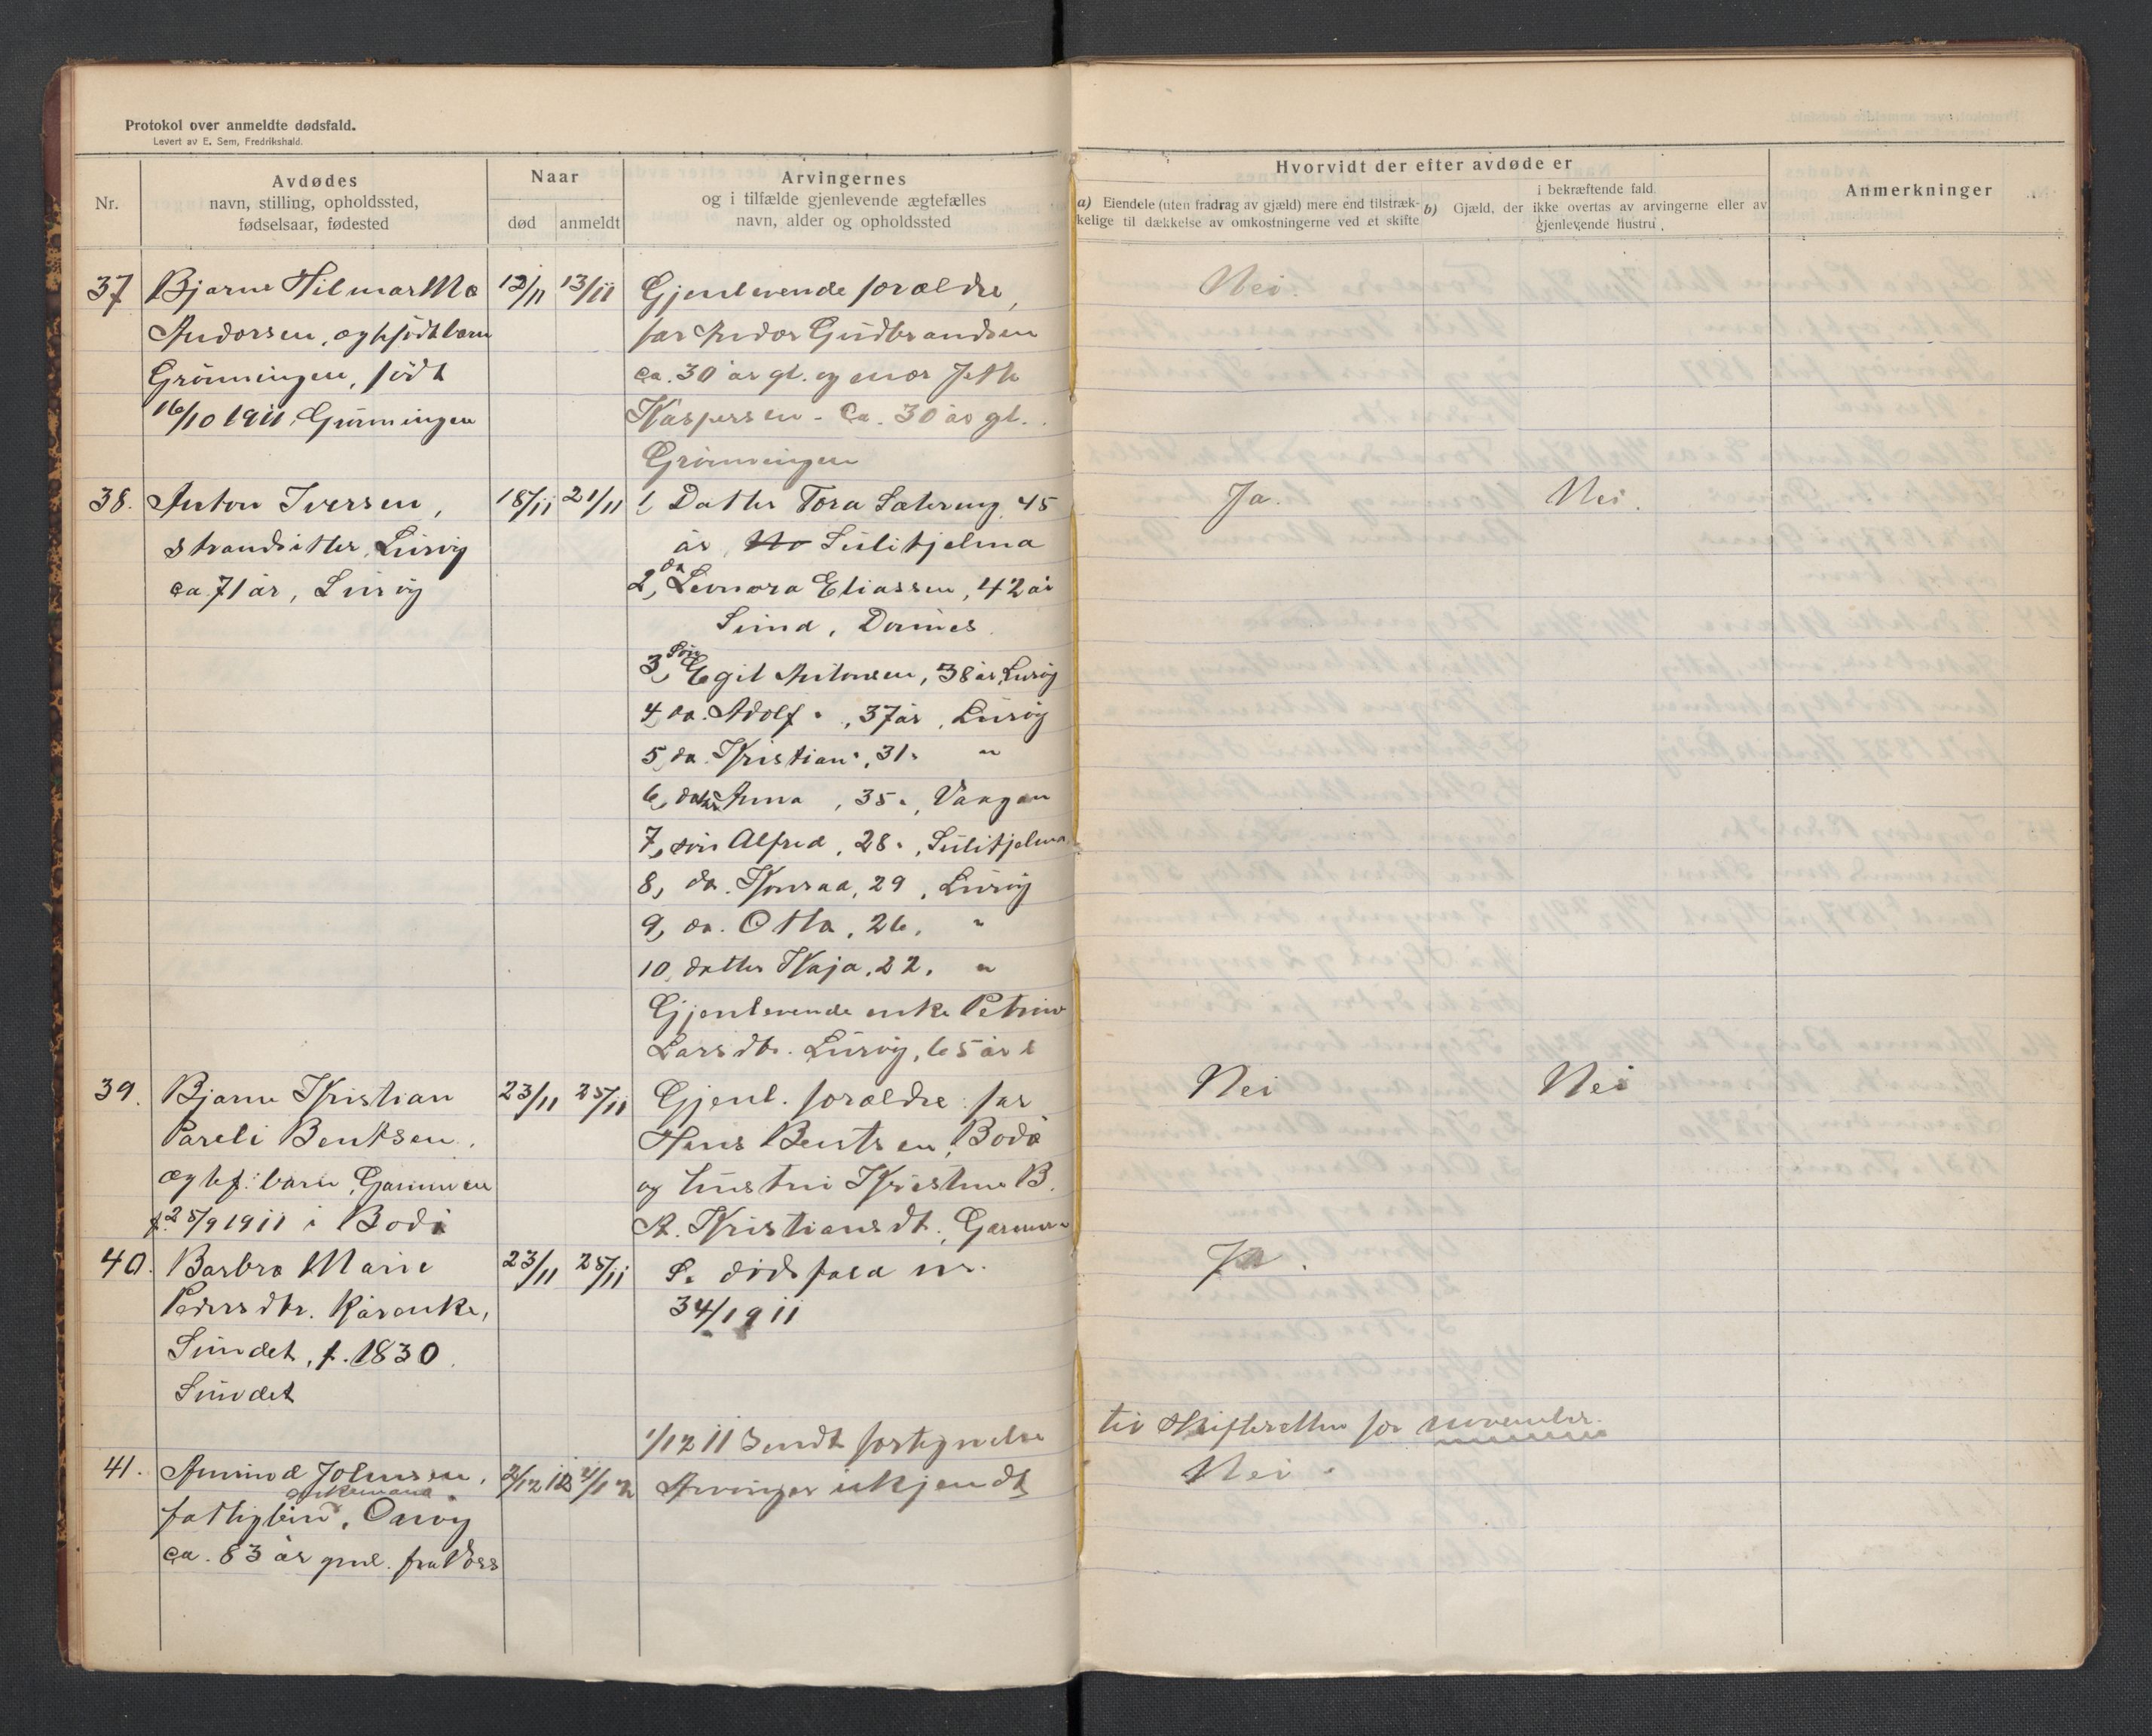 Protokol over anmeldte dødsfald.
Levert av E. Sem, Fredrikshald.
Nr.
Avdødes
navn, stilling, opholdssted,
fødselsaar, fødested
Naar
død
anmeldt
Arvingernes
og i tilfælde gjenlevende ægtefælles
navn, alder og opholdssted
Hvorvidt der efter avdøde er
a) Eiendele (uten fradrag av gjæld) mere end tilstræk-
kelige til dækkelse av omkostningerne ved et skifte
b) Gjæld, der
i bekræftende fald
ikke overtas av arvingerne eller av
gjenlevende hustru
Anmerkninger
37 Bjarne Hilmar 12/11 13/11 Gjenlevende forældre, Nei.
Andorsen, ægtefødt barn far Andor Gudbrandsen
Grønningen, født ca. 30 år gl. og mor
16/10 1911, Grønningen Kaspersen - ca. 30 år gl.
Grønningen
38. Anton Iversen, 18/11 21/11 1, Datter Tora Sætereng, 45 Ja. Nei.
strandsitter, Lurvig år, Sulitjelma
ca 71 år, Lurvig 2, da Leonora Eliassen, 42 år
Sund,
3, Søn Egil Antonsen, 38 år, Lurvig
4 da. Adolf " , 37 år, Lurvig
5, da. Kristian ", 31 " "
6, datter Anna , 35 ", Vaagan
7, søn Alfred, 28 ", Sulitjelma
8, da. Konrad, 29 , Lurvig
9, da. Otto, 26, "
10, datter Kaja, 22, "
Gjenlevende enke Petrine
Larsdtr. Lurvig, 65 år
39. Bjarne Kristian 23/11 25/11 Gjenl. forældre: far Nei Nei
Pareli Bentsen, Hans Bentsen, Bodø
ægtef. barn, og hustru Kristine B.
f. 25/9 1911 i Bodø Kristiansdt.,
40. Barbra Marie 23/11 25/11 Se dødsfald nr. Ja.
Pedersdtr. kårenke, 34/1911
Sundet, f. 1830
Sundet
1/12 11 Sendt fortegnelse til skifteretten for november.
41. Amund Johnsen, 2/12 Arvinger ukjendt Nei.
enkemand
fattiglem,
ca. 83 år gml. fra Voss